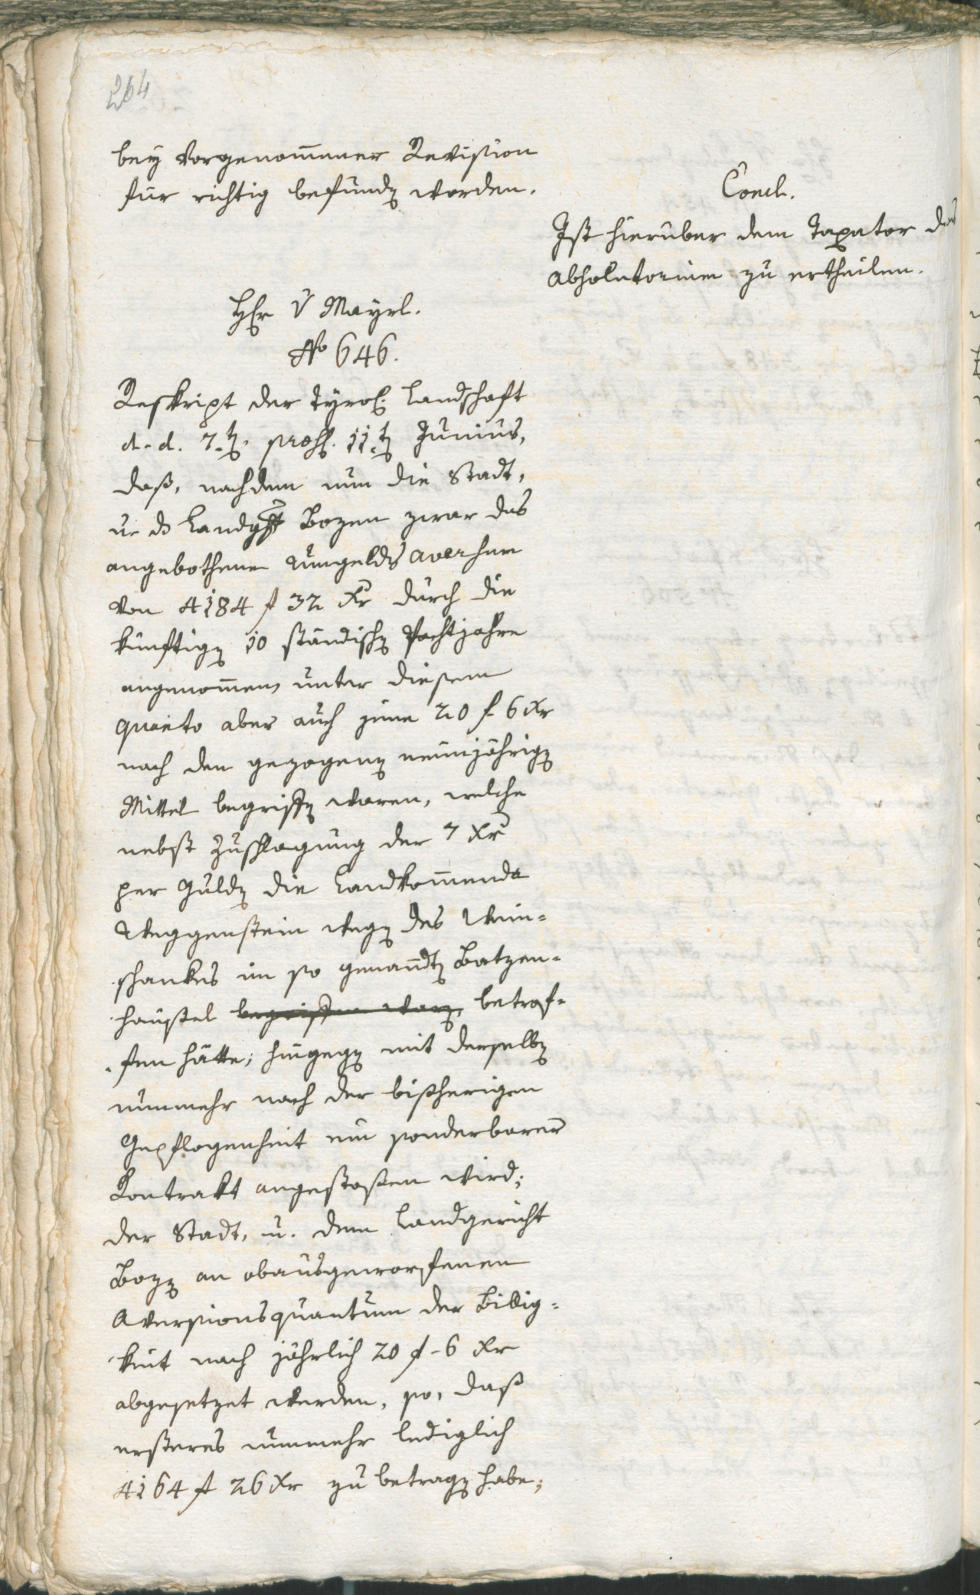 264
bey vorgenom̅ener Revision
für richtig befund worden.
Concl.
Ist hierüber dem Taxator das
Absolutorium zu ertheilen.
H̅E̅r v Mayrl.
No 646.
Reskript der Tyrol. Landschaft
d. d. 7.t. præs. 11.t Junius,
daß, nachdem nun die Stadt,
u. Landg Bozen zwar das
angebothene Umgelds aversum
von 4184 f 32 Xr durch die
künftig 10 ständisch Pachtjahre
angenom̅en, unter diesem
Quanto aber auch jene 20 f 6 Xr
nach den gezogen neunjährig
Mittel begriff waren, welche
nebst Zuschlagung der 7 Xr
per Guld die Landkom̅enda
Weggenstein weg des Wein-
schankes im so genan̅dt Batzen-
häusel begriffen war, betrof-
fen hätte; hingeg mit derselb
nunmehr nach der bisherigen
Gepflogenheit ein sonderbarer
Kontrakt angestoßen wird;
der Stadt, u. dem Landgericht
Boz an obausgeworfenen
Aversionsquantum der Billig-
keit nach jährlich 20 f - 6 Xr
abgesetzet werden, so, daß
ersteres nunmehr lediglich
4164 f 26 Xr zu betrag habe;